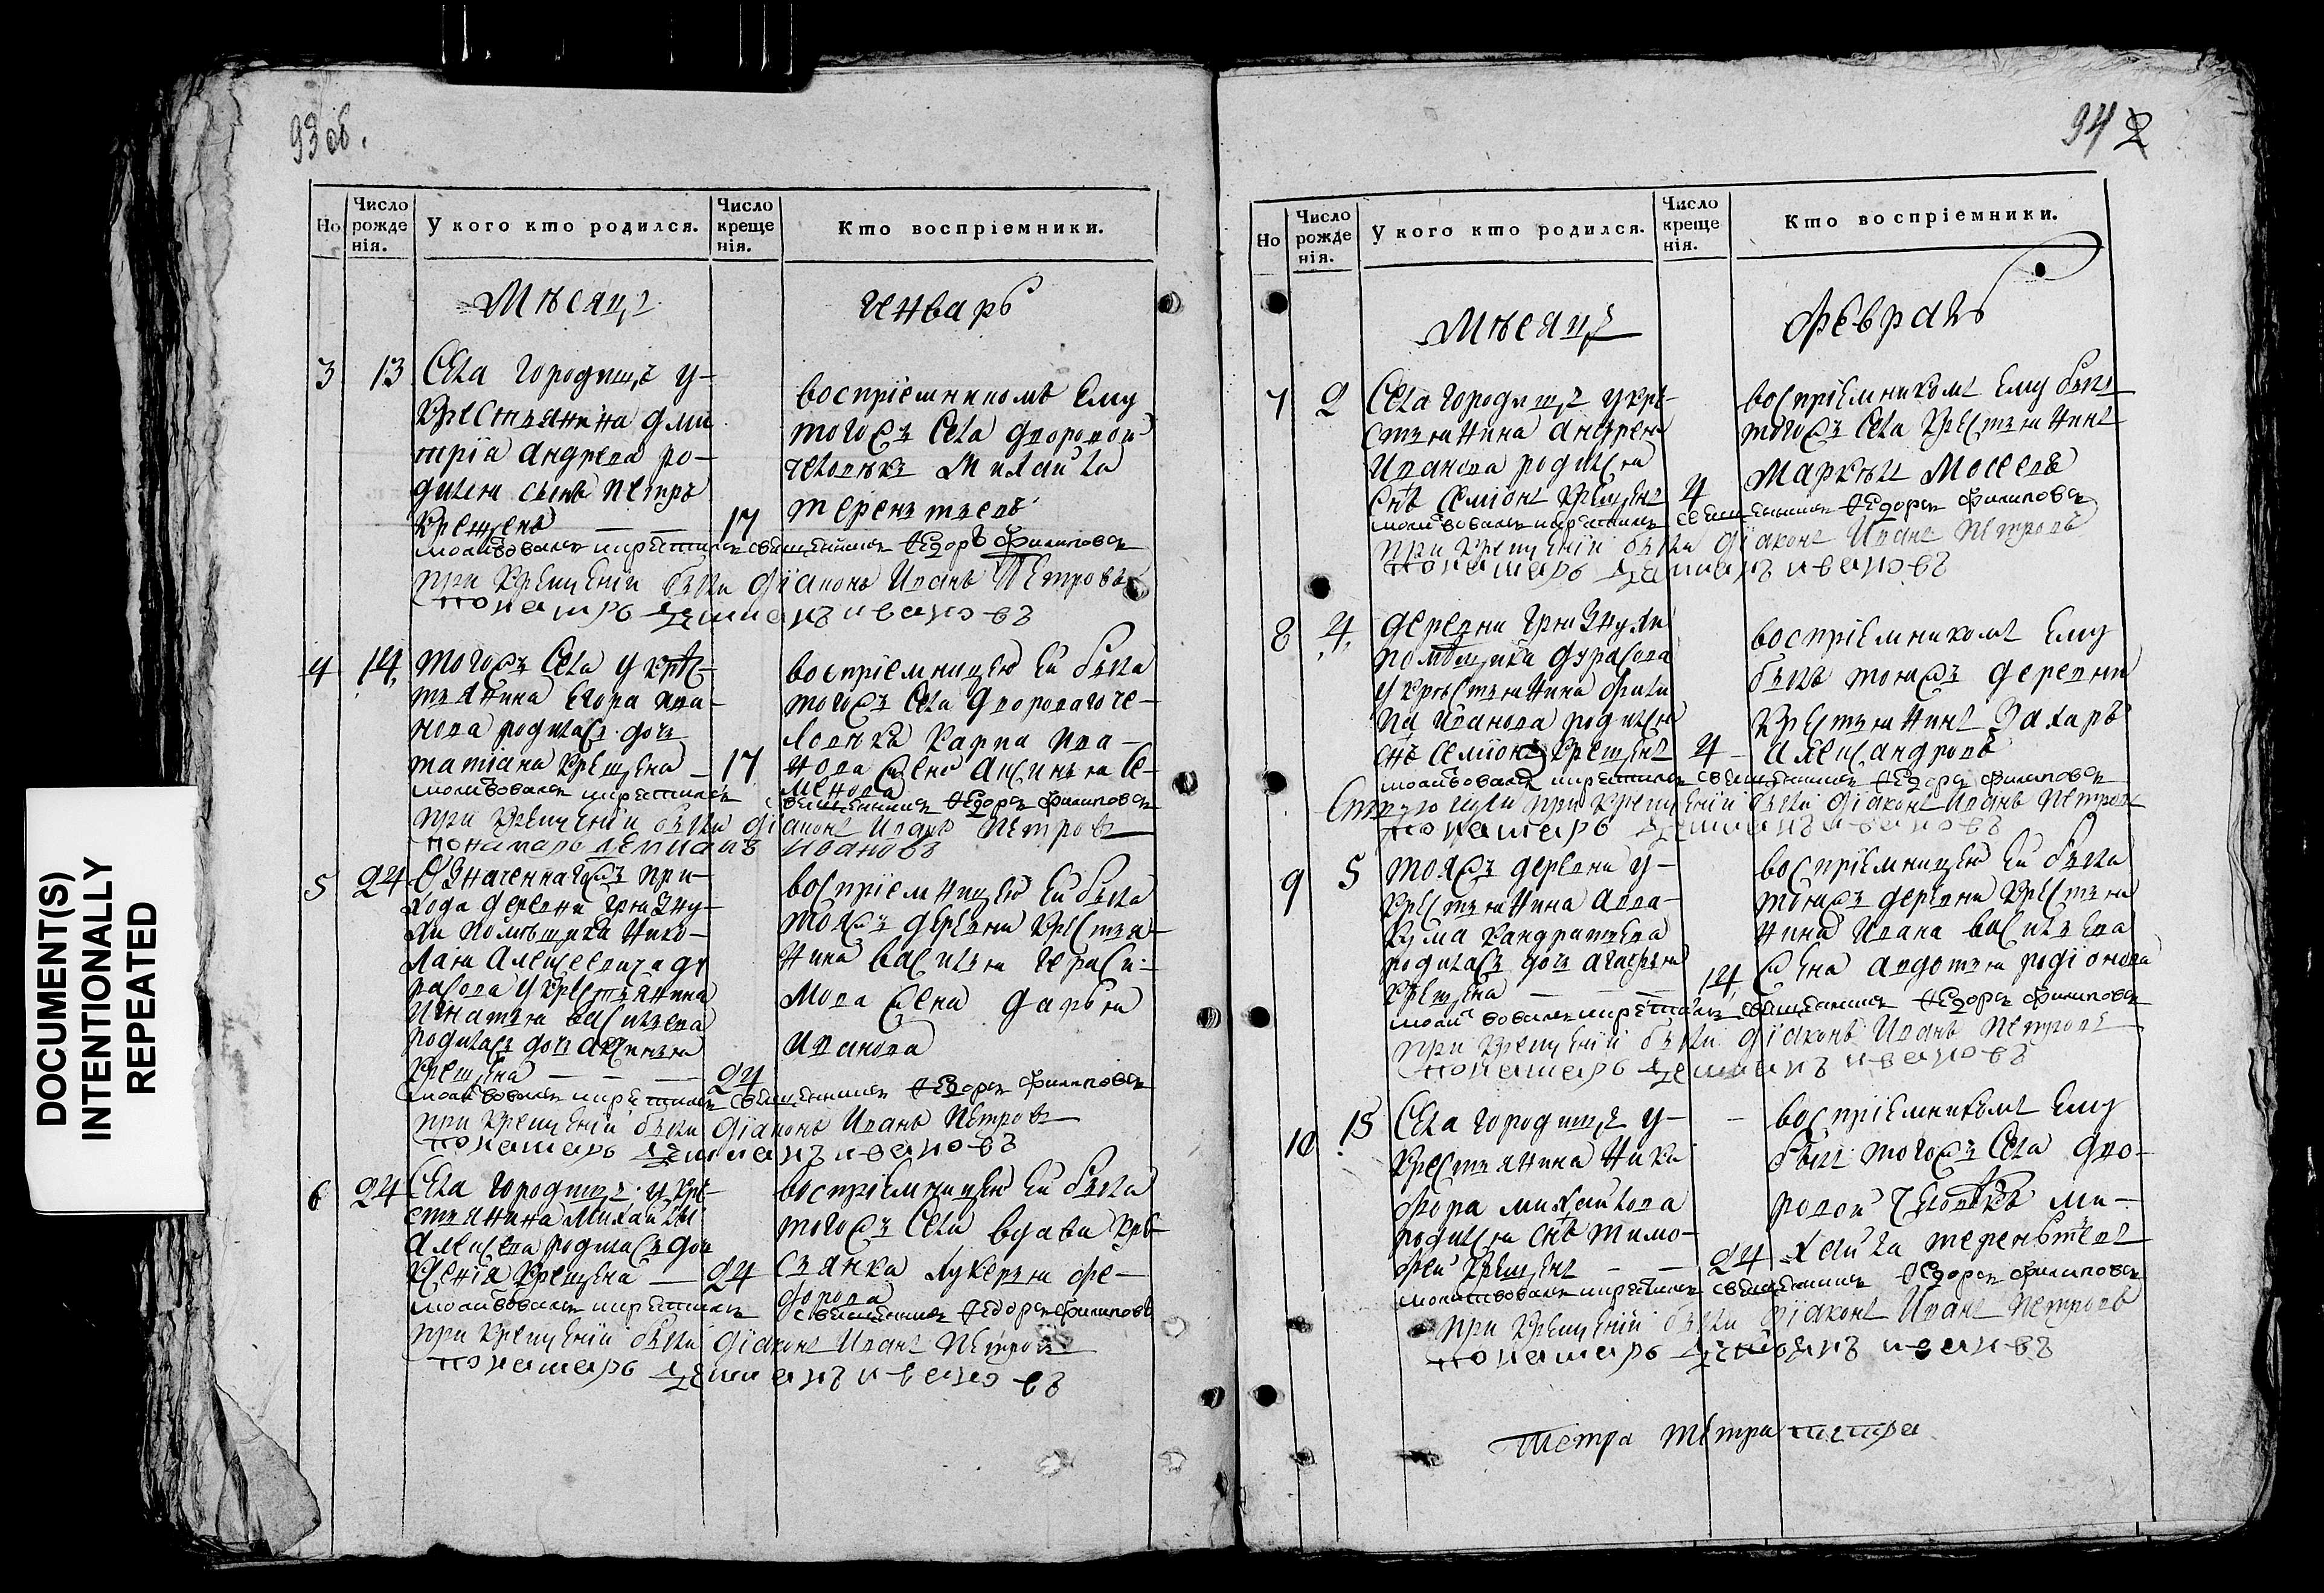 DOCUMENT(S)
INTENTIONALLY
REPEATED
93 об.
Но
Число рожде нія.
У кого кто родился.
Число креще нія.
Кто воспріемники.
Мѣсяцъ генварь
3 13 Села городищъ у-
крестьянина дми
трія андреева ро-
дился сынъ петръ
крещенъ — — 17
воспріемникомъ ему
тогожъ села дворовой
человѣкъ Михайла
терентьевъ
молитвовалъ и крестилъ священникъ Ѳедоръ Филиповъ
при крещеніи были діаконъ Иванъ Петровъ
пономарь демианъ ивановъ
4 14 тогожъ села у крес-
тьянина егора ива-
нова родилась дочь
татіана крещена — 17
воспріемницею ей была
тогожъ села двороваго че-
ловѣка карпа ива-
нова жена аксинья се-
менова
молитвовалъ и крестилъ священникъ Ѳедоръ Филиповъ
при крещеніи были діаконъ Иванъ Петровъ
пономарь демианъ ивановъ
5 24 Означеннагожъ при-
хода деревни грязну-
хи помѣщика нико-
лая алексеевича ду
расова у крестьянина
игнатья васильева
родилась дочь аксинья
крещена — — — 24
воспріемницею ей была
тояжъ деревни крестья-
нина василья гераси-
мова жена дарья
иванова
молитвовалъ и крестилъ священникъ Ѳедоръ Филиповъ
при крещеніи были діаконъ Иванъ Петровъ
пономарь демианъ ивановъ
6 24 Села городищъ у кре-
стьянина михайлы
алексеева родилась дочь
ксенія крещена — 24
воспріемницею ей была
тогожъ села вдова кре-
сьянка лукерья фе-
дорова
молитвовалъ и крестилъ священникъ Ѳедоръ Филиповъ
при крещеніи были діаконъ Иванъ Петровъ
пономарь демианъ ивановъ
94 2
Но
Число рожде нія.
У кого кто родился.
Число креще нія.
Кто воспріемники.
Мѣсяцъ февраль
7 2 Села городищъ у кре-
стьянина андрея
иванова родился
снъ семіонъ крещенъ 4
воспріемникомъ ему былъ
тогожъ села крестьянинъ
маркелъ Моссевъ
молитвовалъ и крестилъ священникъ Ѳедоръ Филиповъ
при крещеніи были діаконъ Иванъ Петровъ
пономарь демианъ ивановъ
8 4 деревни грязнухи
помѣщика дурасова
у крестьянина фили
па иванова родился
снъ семіонъ крещенъ 4
воспріемникомъ ему
былъ тояжъ деревни
крестьянинъ Захаръ
александровъ
молитвовалъ и крестилъ священникъ Ѳедоръ Филиповъ
при крещеніи были діаконъ Иванъ Петровъ
пономарь демианъ ивановъ
9 5 тояжъ деревни у-
крестьянина авва-
кума кандратьева
родилась дочь агафья
крещена — — — 14
воспріемницею ей была
тояжъ деревни крестья
нина ивана васильева
жена авдотья родіонова
молитвовалъ и крестилъ священникъ Ѳедоръ Филиповъ
при крещеніи были діаконъ Иванъ Петровъ
пономарь демианъ ивановъ
10 15 Села городищъ у-
крестьянина ники
фора михайлова
родился снъ тимо-
фей крещенъ — — 24
воспріемникомъ ему
былъ тогожъ села дво-
ровой человѣкъ ми-
хайла терентьевъ
молитвовалъ и крестилъ священникъ Ѳедоръ Филиповъ
при крещеніи были діаконъ Иванъ Петровъ
пономарь демианъ ивановъ